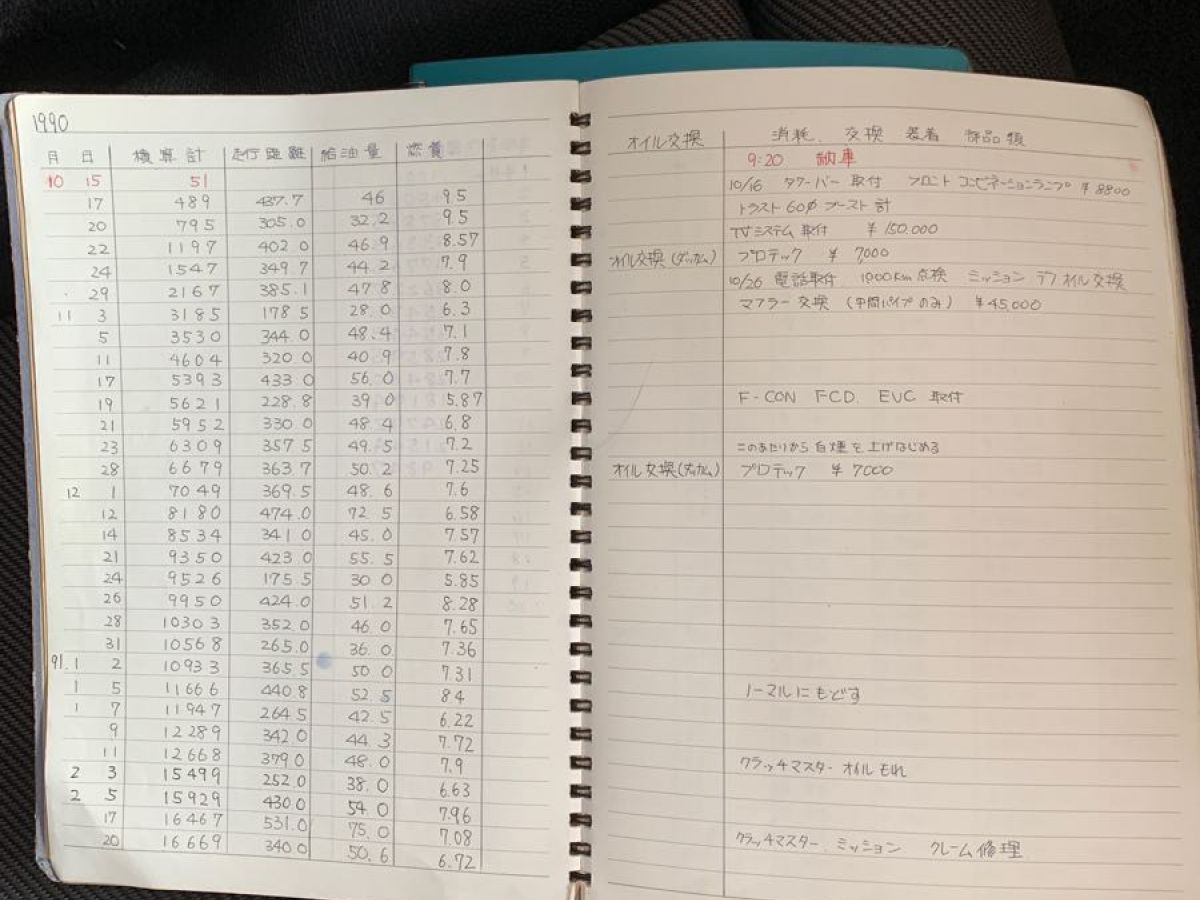 1990
月 日 積算計 走行距離 給油量 燃費
10 15 51
17 489 437.7 46 9.5
20 795 305.0 32.2 9.5
22 1197 402.0 46.9 8.57
24 1547 349.7 44.2 7.9
29 2167 385.1 47.8 8.0
11 3 3185 178.5 28.0 6.3
5 3530 344.0 48.4 7.1
11 4604 320.0 40.9 7.8
17 5393 433.0 56.0 7.7
19 5621 228.8 39.0 5.87
21 5952 330.0 48.4 6.8
23 6309 357.5 49.5 7.2
28 6679 363.7 50.2 7.25
12 1 7049 369.5 48.6 7.6
12 8180 474.0 72.5 6.58
14 8534 341.0 45.0 7.57
21 9350 423.0 55.5 7.62
24 9526 175.5 30.0 5.85
26 9950 424.0 51.2 8.28
28 10303 352.0 46.0 7.65
31 10568 265.0 36.0 7.36
91.1 2 10933 365.5 50.0 7.31
1 5 11666 440.8 52.5 8.4
1 7 11947 264.5 42.5 6.22
9 12289 342.0 44.3 7.72
11 12668 379.0 48.0 7.9
2 3 15499 252.0 38.0 6.63
2 5 15929 430.0 54.0 7.96
17 16467 531.0 75.0 7.08
20 16669 340.0 50.6 6.72
オイル交換 消耗、交換 装着 部品類
9:20 納車
10/16 タワーバー 取付 フロントコンビネーションランプ ¥8800
トラスト60φブースト計
TVシステム取付 ¥150.000
オイル交換(ダッカム) プロテック ¥7000
10/26 電話取付 1000Km点検 ミッション デフオイル交換
マフラー交換 (中間パイプのみ) ¥45,000
F-CON FCD. EVC 取付
このあたりから白煙を上げはじめる
オイル交換(ダッカム) プロテック ¥7000
ノーマルにもどす
クラッチマスターオイルもれ
クラッチマスター、ミッション クレーム修理